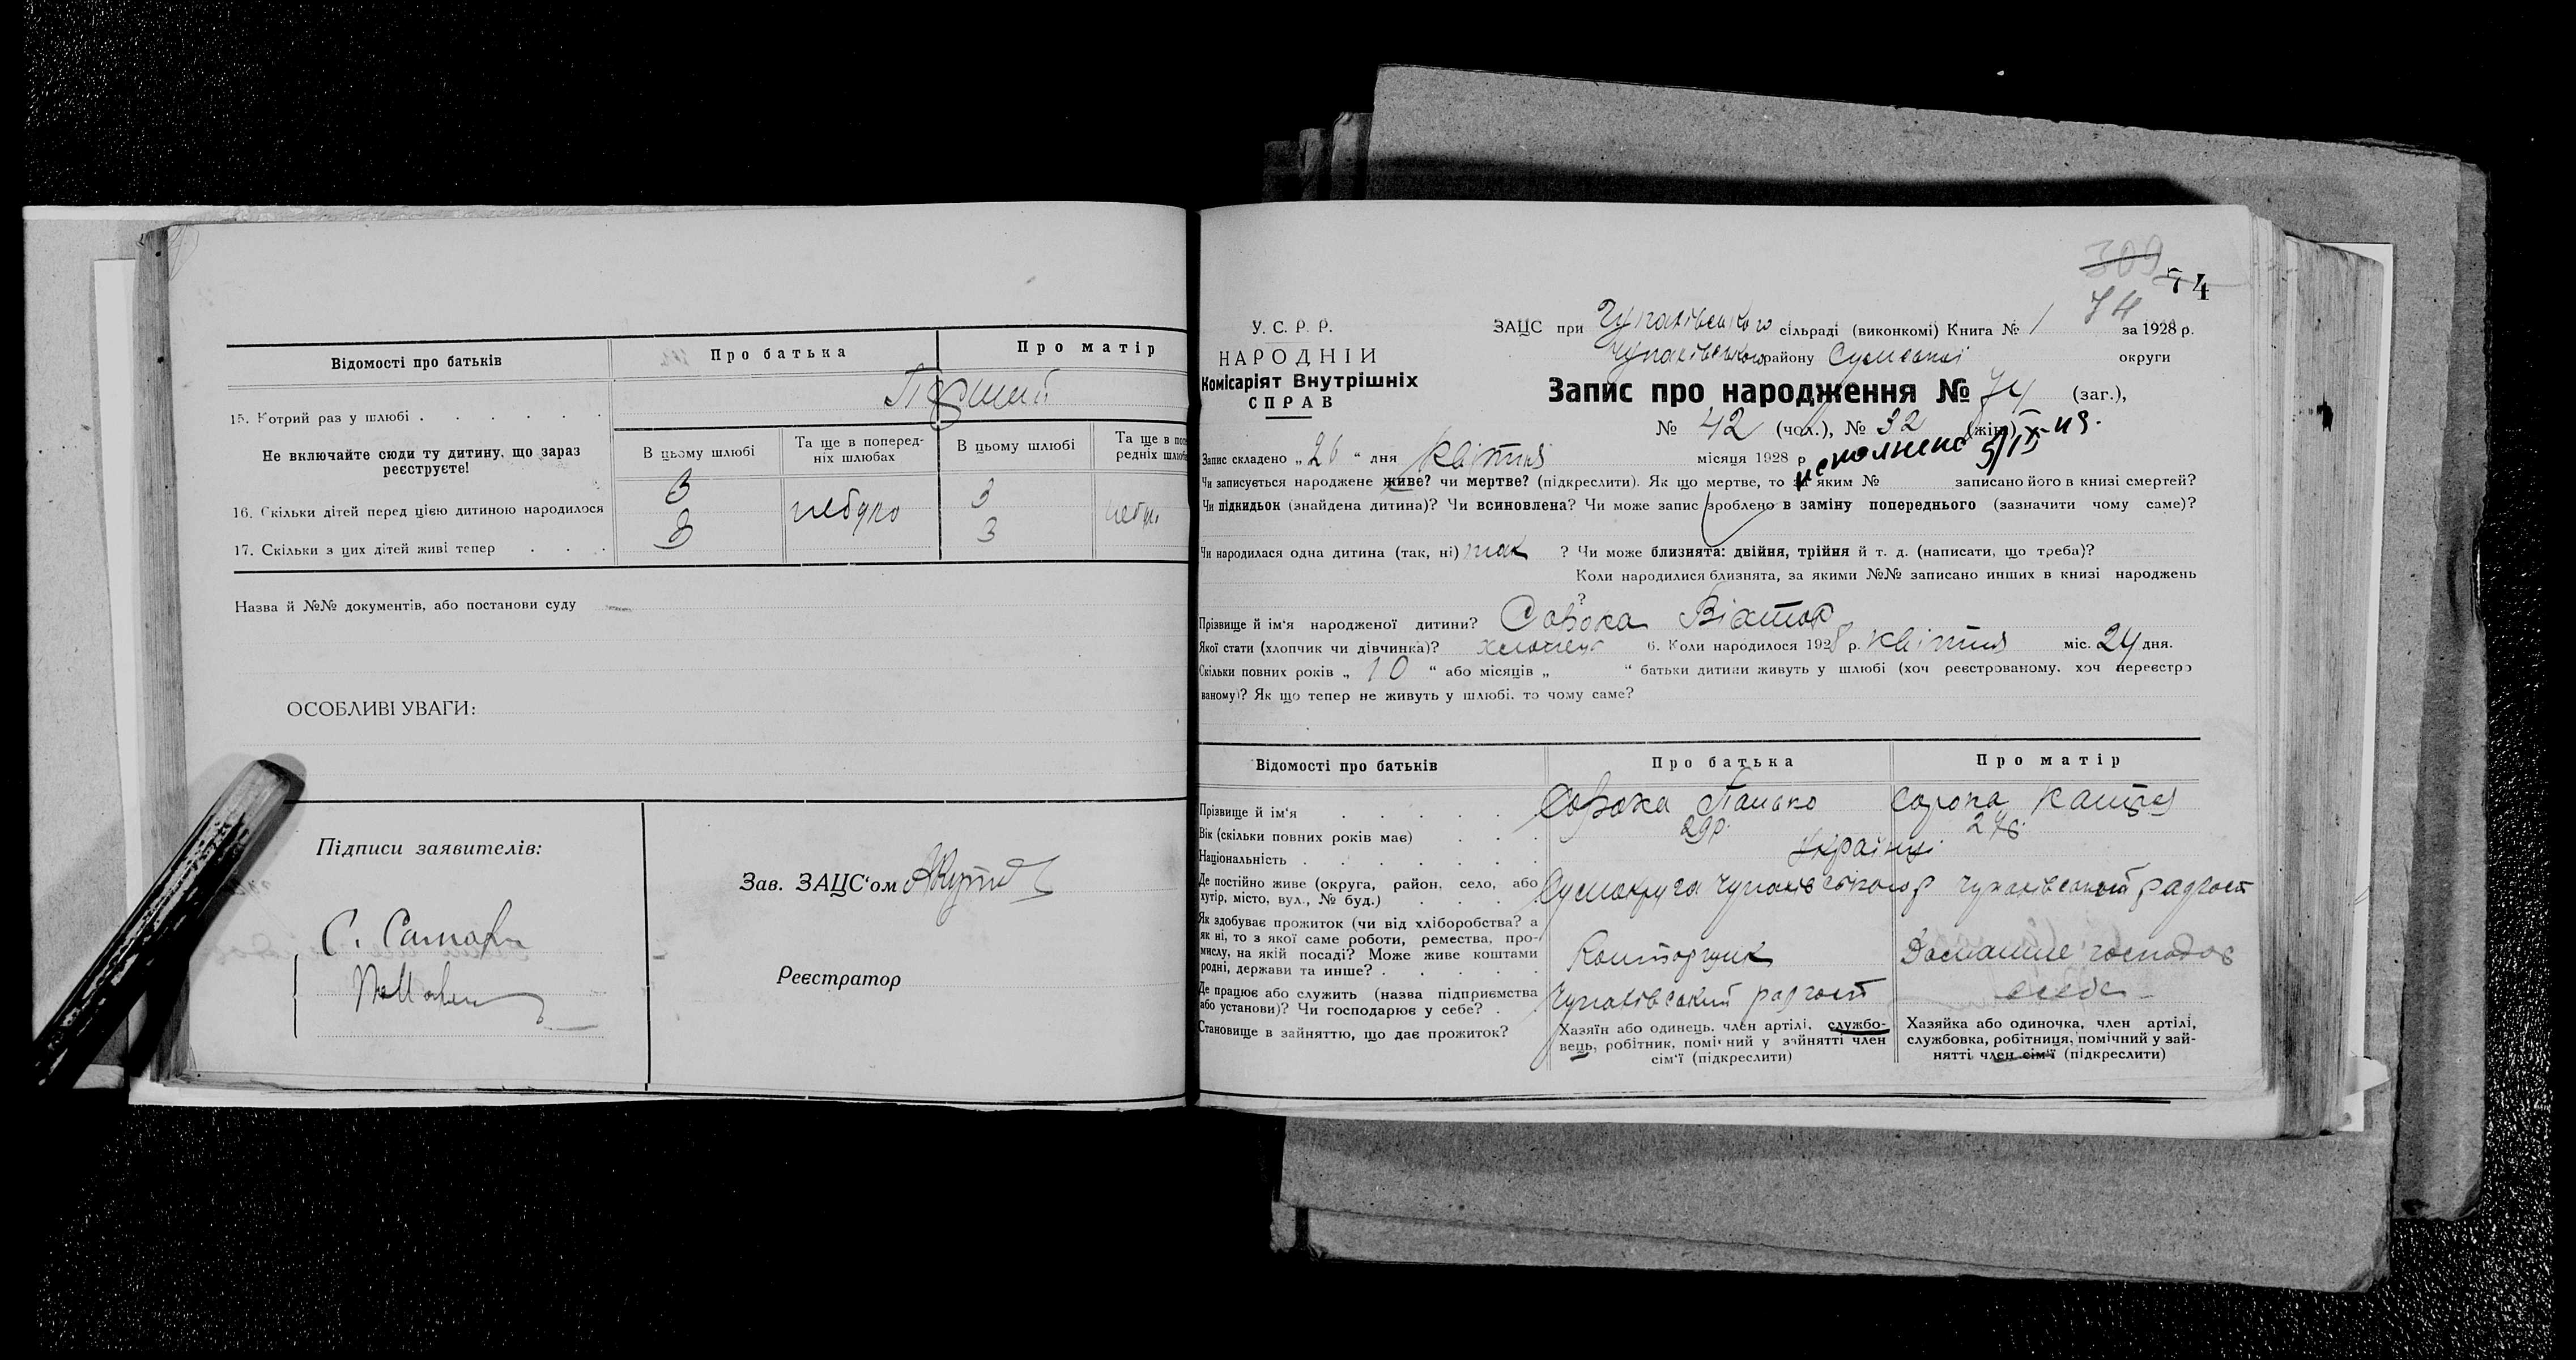 Відомості про батьків
Про батька
Про матір
15. Котрий раз у шлюбі
Перший
Не включайте сюди ту дитину, що зараз реєструєте!
В цьому шлюбі
Та ще в поперед-
ніх шлюбах
В цьому шлюбі
Та ще в поп
редніх шлюб
16. Скільки дітей перед цією дитиною народилося
3
небуло
3
17. Скільки з цих дітей живі тепер
3
3
Назва й №№ документів, або постанови суду
ОСОБЛИВІ УВАГИ:
Підписи заявителів:
Зав. ЗАЦС'ом
Реєстратор
309
74
74
У. С. Р. Р.
НАРОДНІЙ
Комісаріят Внутрішніх
СПРАВ
ЗАЦС при Чупахівського сільраді (виконкомі) Книга № 1 за 1928 р.
Чупахівського району Сумської округи
Запис про народження № 74 (заг.),
№ 42 (чол.), № 32 (жін.)
Запис складено „ 26 “ дня квітня місяця 1928 р
исполнено 5/IX-49.
Чи записується народжене живе? чи мертве? (підкреслити). Як що мертве, то за яким № записано його в книзі смертей?
Чи підкидьок (знайдена дитина)? Чи всиновлена? Чи може запис зроблено в заміну попереднього (зазначити чому саме)?
Чи народилася одна дитина (так, ні) так ? Чи може близнята: двійня, трійня й т. д. (написати, що треба)?
Коли народилися близнята, за якими №№ записано инших в книзі народжень
?
Прізвище й ім'я народженої дитини? Сорока Віктор
Якої стати (хлопчик чи дівчинка)? хлопець 6. Коли народилося 1928 р. квітня міс. 24 дня.
Скільки повних років „ 10 “ або місяців „ “ батьки дитини живуть у шлюбі (хоч реєстрованому, хоч нереєстро
ваному)? Як що тепер не живуть у шлюбі, то чому саме?
Відомості про батьків
Про батька
Про матір
Прізвище й ім'я
Сорока Панько
Сорока Катря
Вік (скільки повних років має)
29р.
Національність
Українці
Де постійно живе (округа, район, село, або
хутір, місто, вул., № буд.)
Сумокруга Чупахівського р Чупахівський радгосп
Як здобуває прожиток (чи від хліборобства? а
як ні, то з якої саме роботи, ремества, про-
мислу, на якій посаді? Може живе коштами
родні, держави та инше?
Конторщик
Домашнє господар
Де працює або служить (назва підприємства
або установи)? Чи господарює у себе?
Чупахівський радгосп
в себе
Становище в зайняттю, що дає прожиток?
Хазяїн або одинець, член артілі, службо-
вець, робітник, помічний у зайнятті член
сім'ї (підкреслити)
Хазяйка або одиночка, член артілі,
службовка, робітниця, помічний у зай-
нятті член сім'ї (підкреслити)